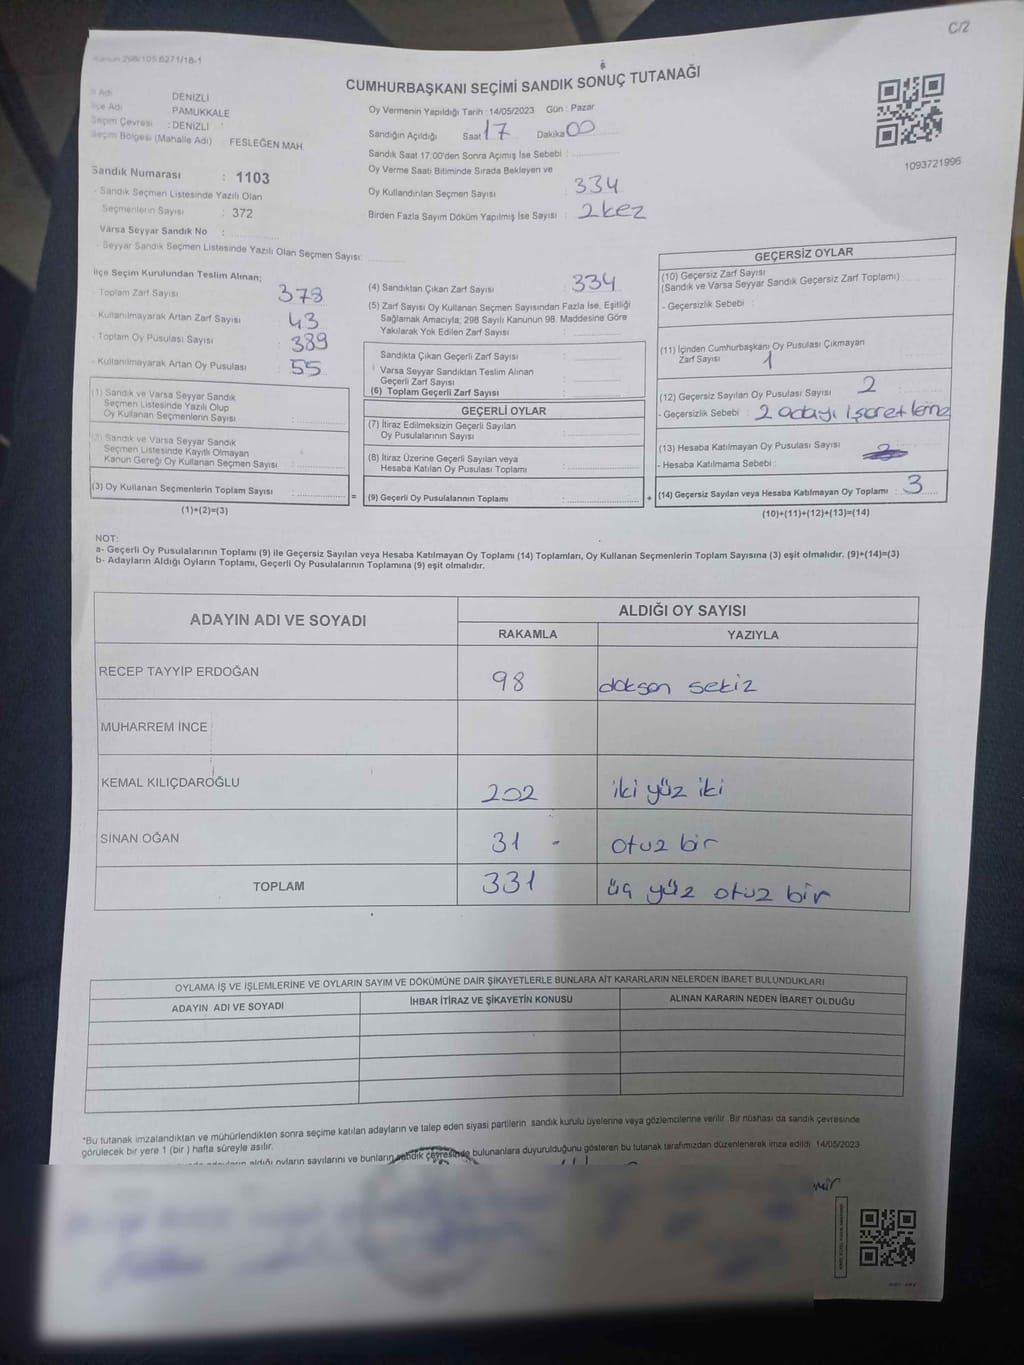 C/2
298/105.6271/18-1
CUMHURBAŞKANI SEÇİMİ SANDIK SONUÇ TUTANAĞI
1093721996
İl Adı DENİZLİ
İlçe Adı PAMUKKALE
Seçim Çevresi : DENİZLİ
Seçim Bölgesi (Mahalle Adı) FESLEĞEN MAH
Sandık Numarası : 1103
- Sandık Seçmen Listesinde Yazılı Olan
Seçmenlerin Sayısı : 372
Varsa Seyyar Sandık No :
- Seyyar Sandık Seçmen Listesinde Yazılı Olan Seçmen Sayısı:
Oy Vermenin Yapıldığı Tarih : 14/05/2023 Gün : Pazar
Sandığın Açıldığı Saat 17 Dakika 00
Sandık Saat 17:00'den Sonra Açımış İse Sebebi :
Oy Verme Saati Bitiminde Sırada Bekleyen ve
Oy Kullandırılan Seçmen Sayısı : 334
Birden Fazla Sayım Döküm Yapılmış İse Sayısı : 2 kez
İlçe Seçim Kurulundan Teslim Alınan;
- Toplam Zarf Sayısı 378
- Kullanılmayarak Artan Zarf Sayısı 43
- Toplam Oy Pusulası Sayısı 389
- Kullanılmayarak Artan Oy Pusulası 55
(1) Sandık ve Varsa Seyyar Sandık
Seçmen Listesinde Yazılı Olup
Oy Kullanan Seçmenlerin Sayısı :
(2) Sandık ve Varsa Seyyar Sandık
Seçmen Listesinde Kayıtlı Olmayan
Kanun Gereği Oy Kullanan Seçmen Sayısı :
(3) Oy Kullanan Seçmenlerin Toplam Sayısı :
(1)+(2)=(3)
=
(4) Sandıktan Çıkan Zarf Sayısı : 334
(5) Zarf Sayısı Oy Kullanan Seçmen Sayısından Fazla İse, Eşitliği
Sağlamak Amacıyla; 298 Sayılı Kanunun 98. Maddesine Göre
Yakılarak Yok Edilen Zarf Sayısı :
Sandıkta Çıkan Geçerli Zarf Sayısı :
Varsa Seyyar Sandıktan Teslim Alınan
Geçerli Zarf Sayısı :
(6) Toplam Geçerli Zarf Sayısı :
GEÇERLİ OYLAR
(7) İtiraz Edilmeksizin Geçerli Sayılan
Oy Pusulalarının Sayısı :
(8) İtiraz Üzerine Geçerli Sayılan veya
Hesaba Katılan Oy Pusulası Toplamı :
(9) Geçerli Oy Pusulalarının Toplamı :
+
GEÇERSİZ OYLAR
(10) Geçersiz Zarf Sayısı
(Sandık ve Varsa Seyyar Sandık Geçersiz Zarf Toplamı)
- Geçersizlik Sebebi :
(11) İçinden Cumhurbaşkanı Oy Pusulası Çıkmayan
Zarf Sayısı 1
(12) Geçersiz Sayılan Oy Pusulası Sayısı 2
- Geçersizlik Sebebi : 2 adayı işaretleme
(13) Hesaba Katılmayan Oy Pusulası Sayısı
- Hesaba Katılmama Sebebi :
(14) Geçersiz Sayılan veya Hesaba Katılmayan Oy Toplamı : 3
(10)+(11)+(12)+(13)=(14)
NOT:
a- Geçerli Oy Pusulalarının Toplamı (9) ile Geçersiz Sayılan veya Hesaba Katılmayan Oy Toplamı (14) Toplamları, Oy Kullanan Seçmenlerin Toplam Sayısına (3) eşit olmalıdır. (9)+(14)=(3)
b- Adayların Aldığı Oyların Toplamı, Geçerli Oy Pusulalarının Toplamına (9) eşit olmalıdır.
ADAYIN ADI VE SOYADI ALDIĞI OY SAYISI
RAKAMLA YAZIYLA
RECEP TAYYİP ERDOĞAN 98 doksan sekiz
MUHARREM İNCE
KEMAL KILIÇDAROĞLU 202 iki yüz iki
SİNAN OĞAN 31 - otuz bir
TOPLAM 331 üç yüz otuz bir
OYLAMA İŞ VE İŞLEMLERİNE VE OYLARIN SAYIM VE DÖKÜMÜNE DAİR ŞİKAYETLERLE BUNLARA AİT KARARLARIN NELERDEN İBARET BULUNDUKLARI
ADAYIN ADI VE SOYADI İHBAR İTİRAZ VE ŞİKAYETİN KONUSU ALINAN KARARIN NEDEN İBARET OLDUĞU
*Bu tutanak imzalandıktan ve mühürlendikten sonra seçime katılan adayların ve talep eden siyasi partilerin sandık kurulu üyelerine veya gözlemcilerine verilir. Bir nüshası da sandık çevresinde
görülecek bir yere 1 (bir) hafta süreyle asılır.
aldığı oyların sayılarını ve bunların sandık çevresinde bulunanlara duyurulduğunu gösteren bu tutanak tarafımızdan düzenlenerek imza edildi. 14/05/2023